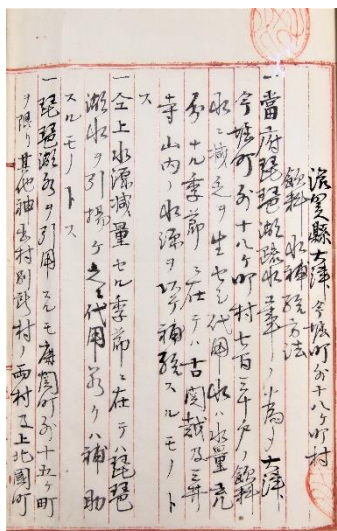 滋賀縣大津今堀町外十八ヶ町村
飲料水補給方法
一當府琵琶湖疏水工事ノ為メ大津
今堀町外十八ヶ町村七百三十戸ノ飲料
水ニ減乏ヲ生セシ代用水ハ水量充
分ナル季節ニ在テハ古関越及三井
寺山内ノ水源ヲ以テ補給スルモノト
ス
一仝上水源減量セル季節ニ在テハ琵琶
湖水ヲ引揚ケ之ヲ代用若クハ補助
スルモノトス
一琵琶湖水ヲ引用スルモ庫関町外十五ヶ町
ヲ限リ其他神出村別所村ノ両村及上北國町